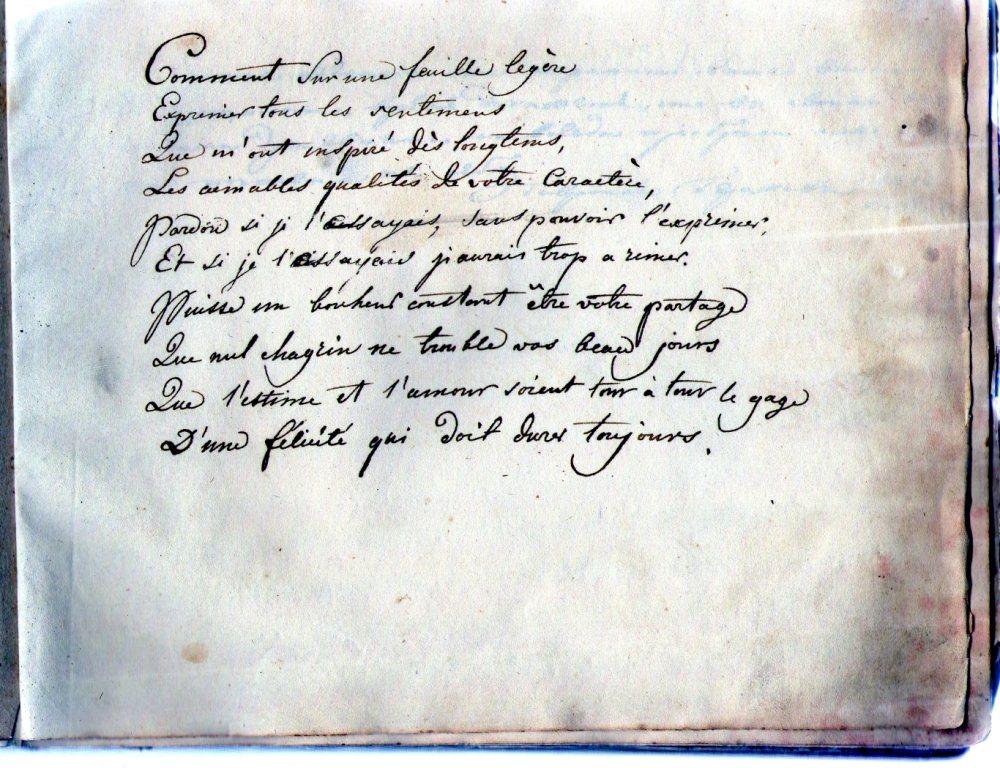 Comment sur une feuille legère
Exprimer tous les sentimens
Que m'ont inspiré dès longtems,
Les aimables qualités de votre Caractère,
Pardon si je l'essayais, sans pouvoir l'exprimer,
Et si je l'essayais j'aurais trop a rimer.
Puisse un bonheur constant être votre partage
Que nul chagrin ne trouble vos beaux jours
Que l'estime et l'amour soient tour à tour le gage
D'une félicité qui doit durer toujours.